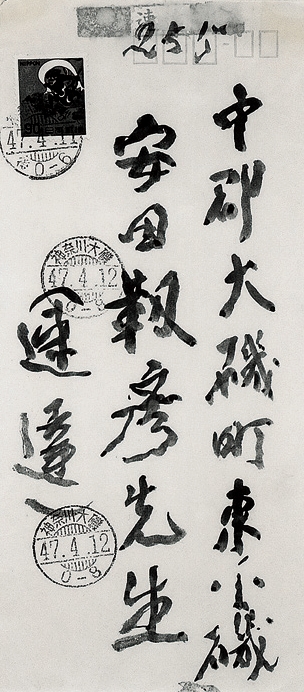 中郡大磯町東小磯
安田靫彦先生
速達
NIPPON
47.4.11
0-8
神奈川大磯
47.4.12
0-8
神奈川大磯
47.4.12
0-8